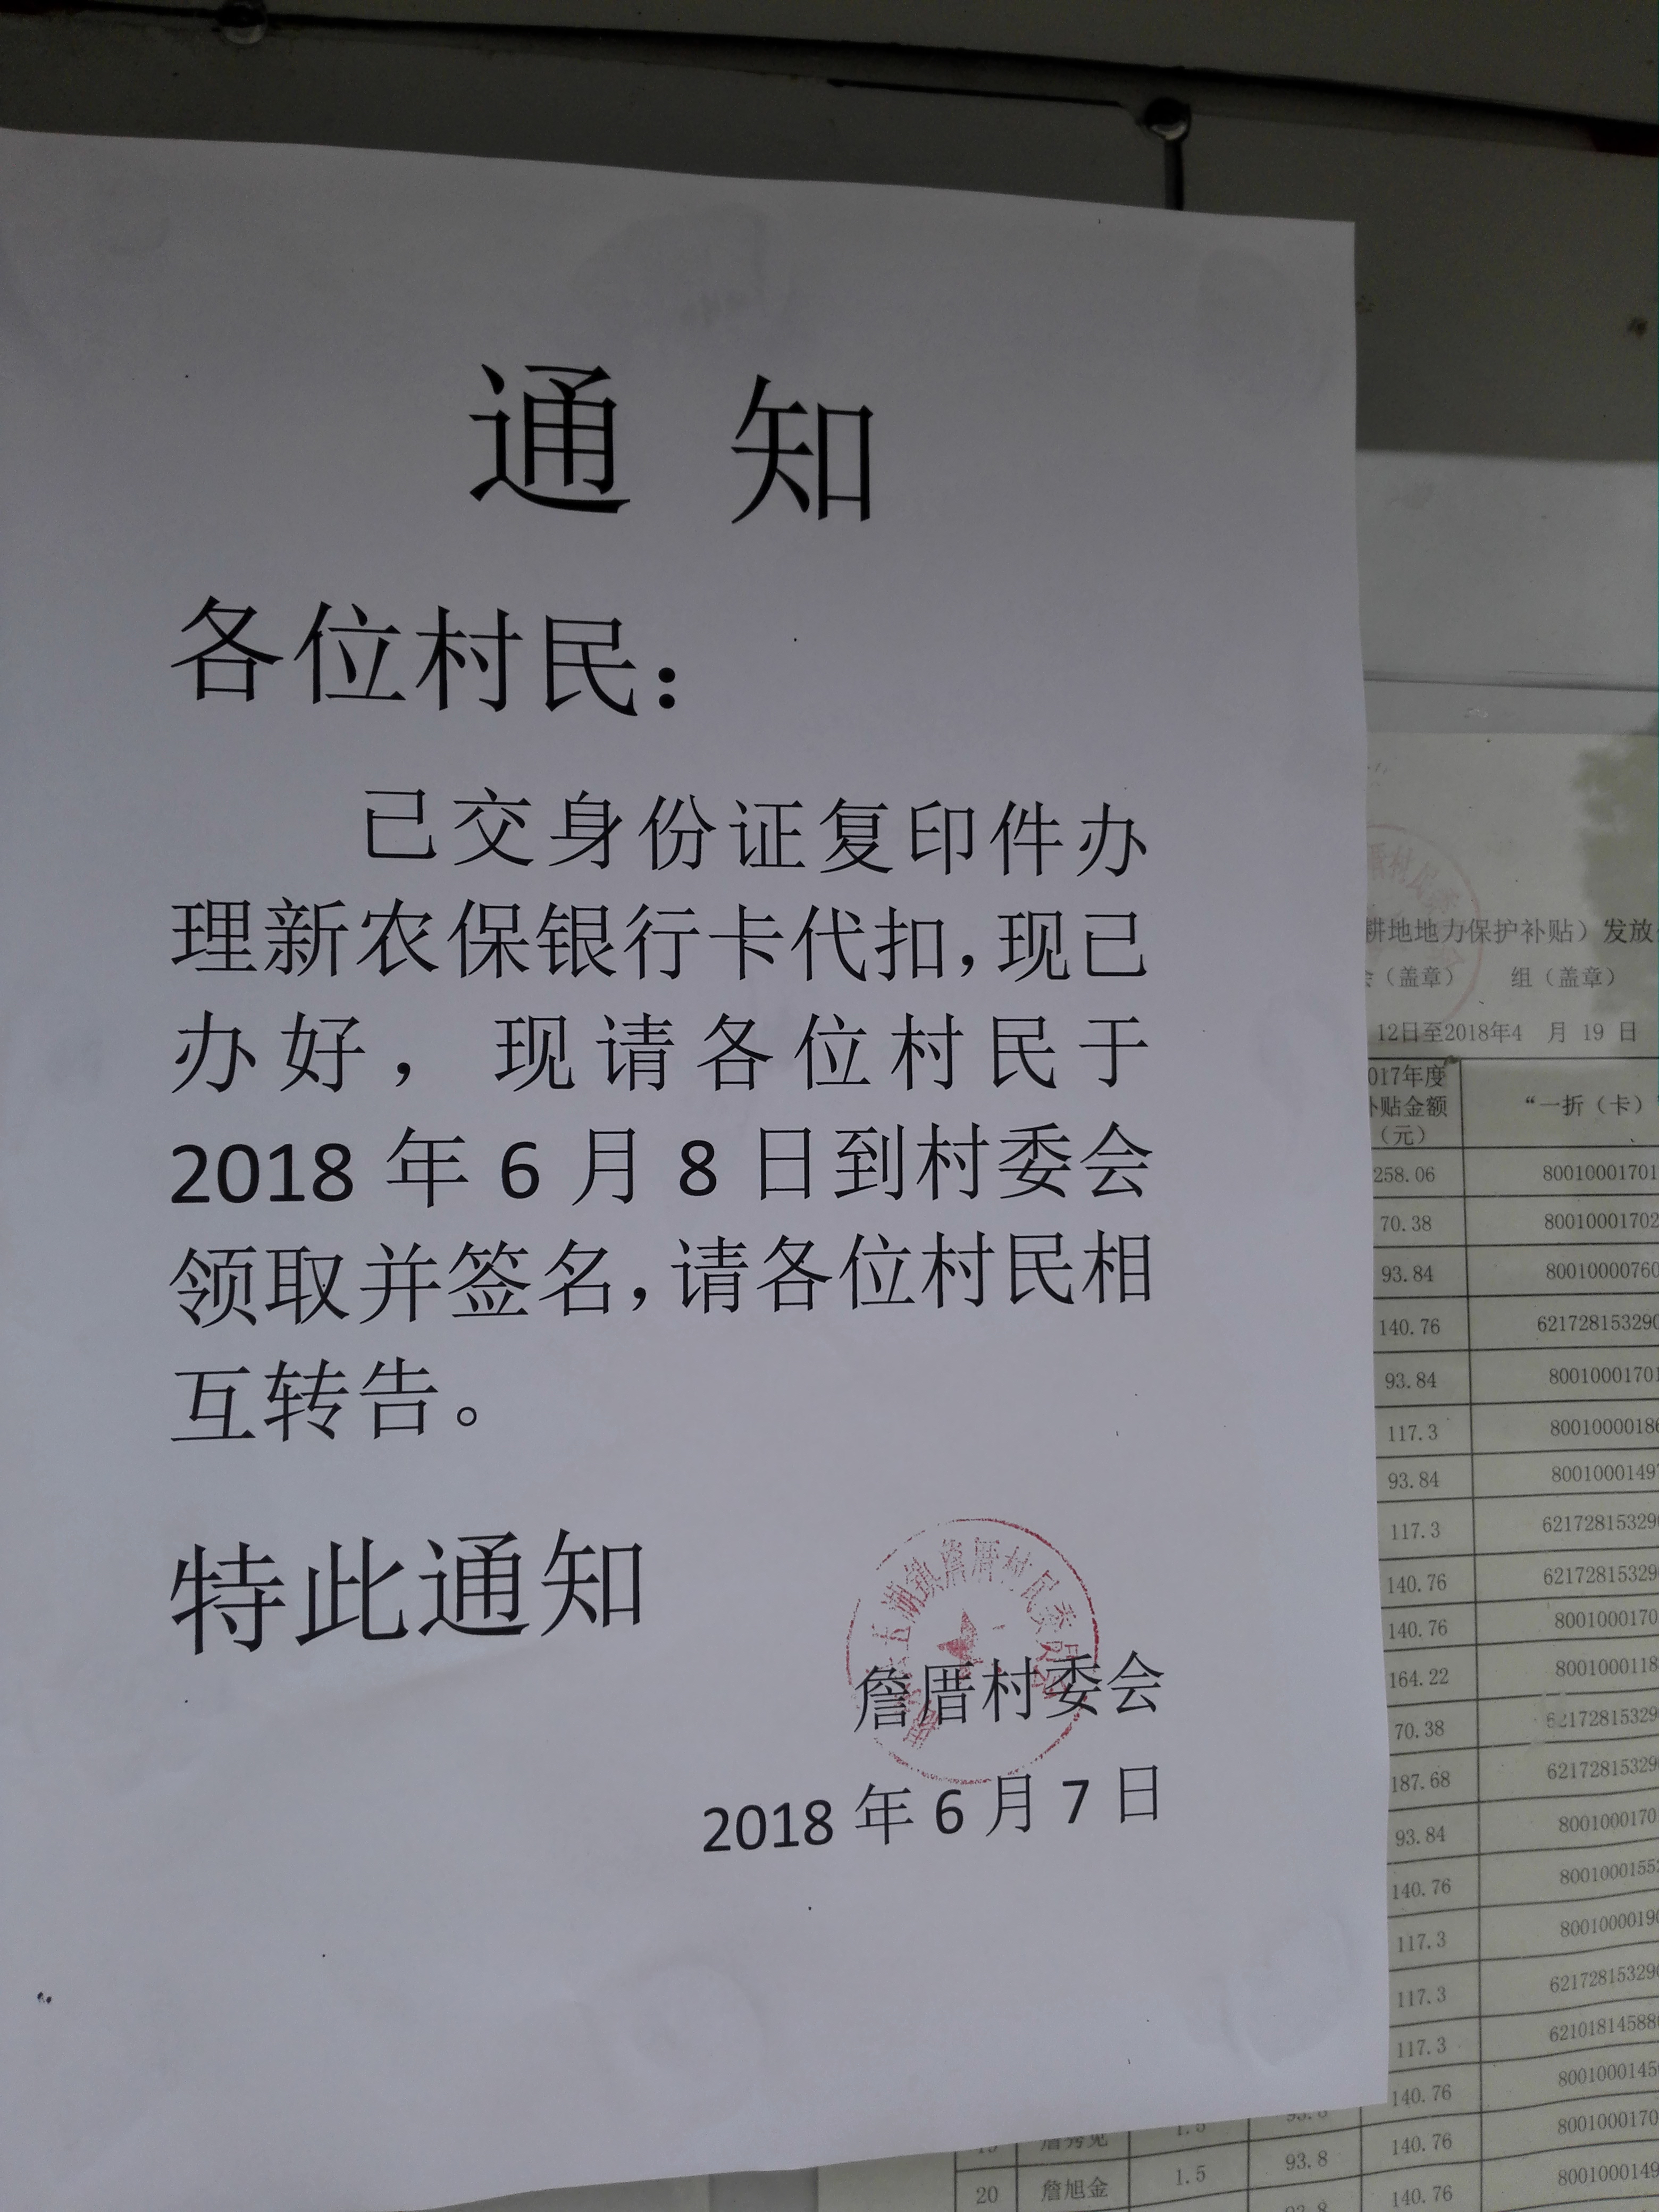 通 知
各位村民：
已交身份证复印件办
理新农保银行卡代扣，现已
办好，现请各位村民于
2018 年 6 月 8 日到村委会
领取并签名，请各位村民相
互转告。
特此通知
五湖镇詹厝村民委员会
詹厝村委会
2018 年 6 月 7 日
厝村民委
耕地地力保护补贴）发放
（盖章） 组（盖章）
12日至2018年4 月 19 日
017年度
补贴金额
（元）
“一折（卡）
258.06 80010001701
70.38 80010001702
93.84 80010000760
140.76 621728153290
93.84 80010001701
117.3 80010000186
93.84 8001000149
117.3 62172815329
140.76 62172815329
140.76 8001000170
164.22 8001000118
70.38 62172815329
187.68 62172815329
93.84 8001000170
140.76 8001000155
117.3 8001000019
117.3 62172815329
117.3 62101814588
140.76 8001000145
19 詹秀 1.5 93.8 140.76 8001000170
20 詹旭金 1.5 93.8 140.76 800100014